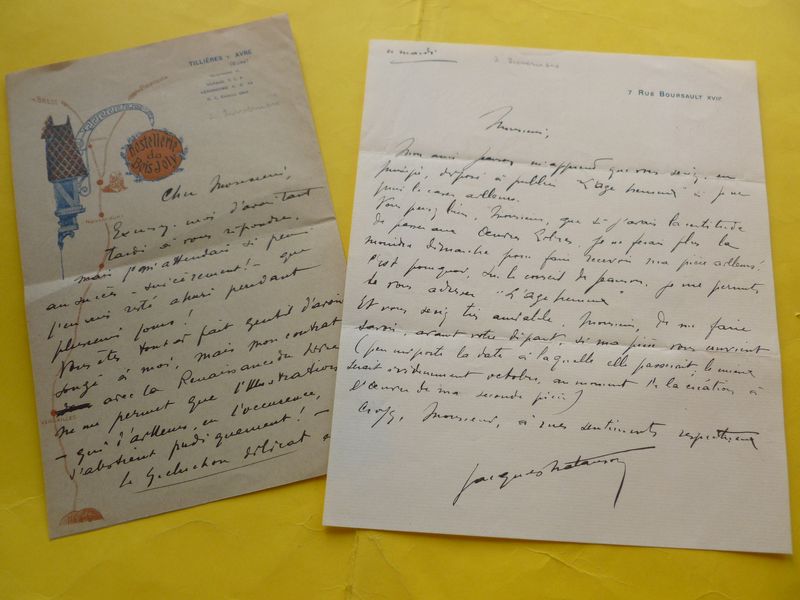 TILLIÈRES s AVRE
(EURE)
BREST
Hostellerie
du
Bois Joly
VERSAILLES
Cher Monsieur,
Excusez-moi d'avoir tant
tardé à vous répondre,
mais je m'attendais si peu
au succès - sincèrement! - que
j'en suis resté ahuri pendant
plusieurs jours!
Vous êtes tout à fait gentil d'avoir
songé à moi, mais mon contrat
avec la Renaissance du Livre
ne me permet que l'Illustration
- qui d'ailleurs, en l'occurence,
s'abstient pudiquement! -
Le Greluchon délicat a
ce mardi
7 RUE BOURSAULT XVIIe
Monsieur,
Mon ami m'apprend que vous seriez, en
principe, disposé à publier "L'âge heureux" si je ne
puis le caser ailleurs.
Vous pensez bien, Monsieur, que si j'avais la certitude
de passer aux Œuvres Libres, je ne ferais plus la
moindre démarche pour faire recevoir ma pièce ailleurs!
C'est pourquoi, sur le conseil de je me permets
de vous adresser "L'âge heureux"
Et vous seriez très aimable, Monsieur, de me faire
savoir, avant votre départ, si ma pièce vous convient
(peu importe la date à laquelle elle passerait, le mieux
serait évidemment octobre, au moment de la création à
l'Œuvre de ma seconde pièce)
Croyez, Monsieur, à mes sentiments respectueux
Jacques Natanson